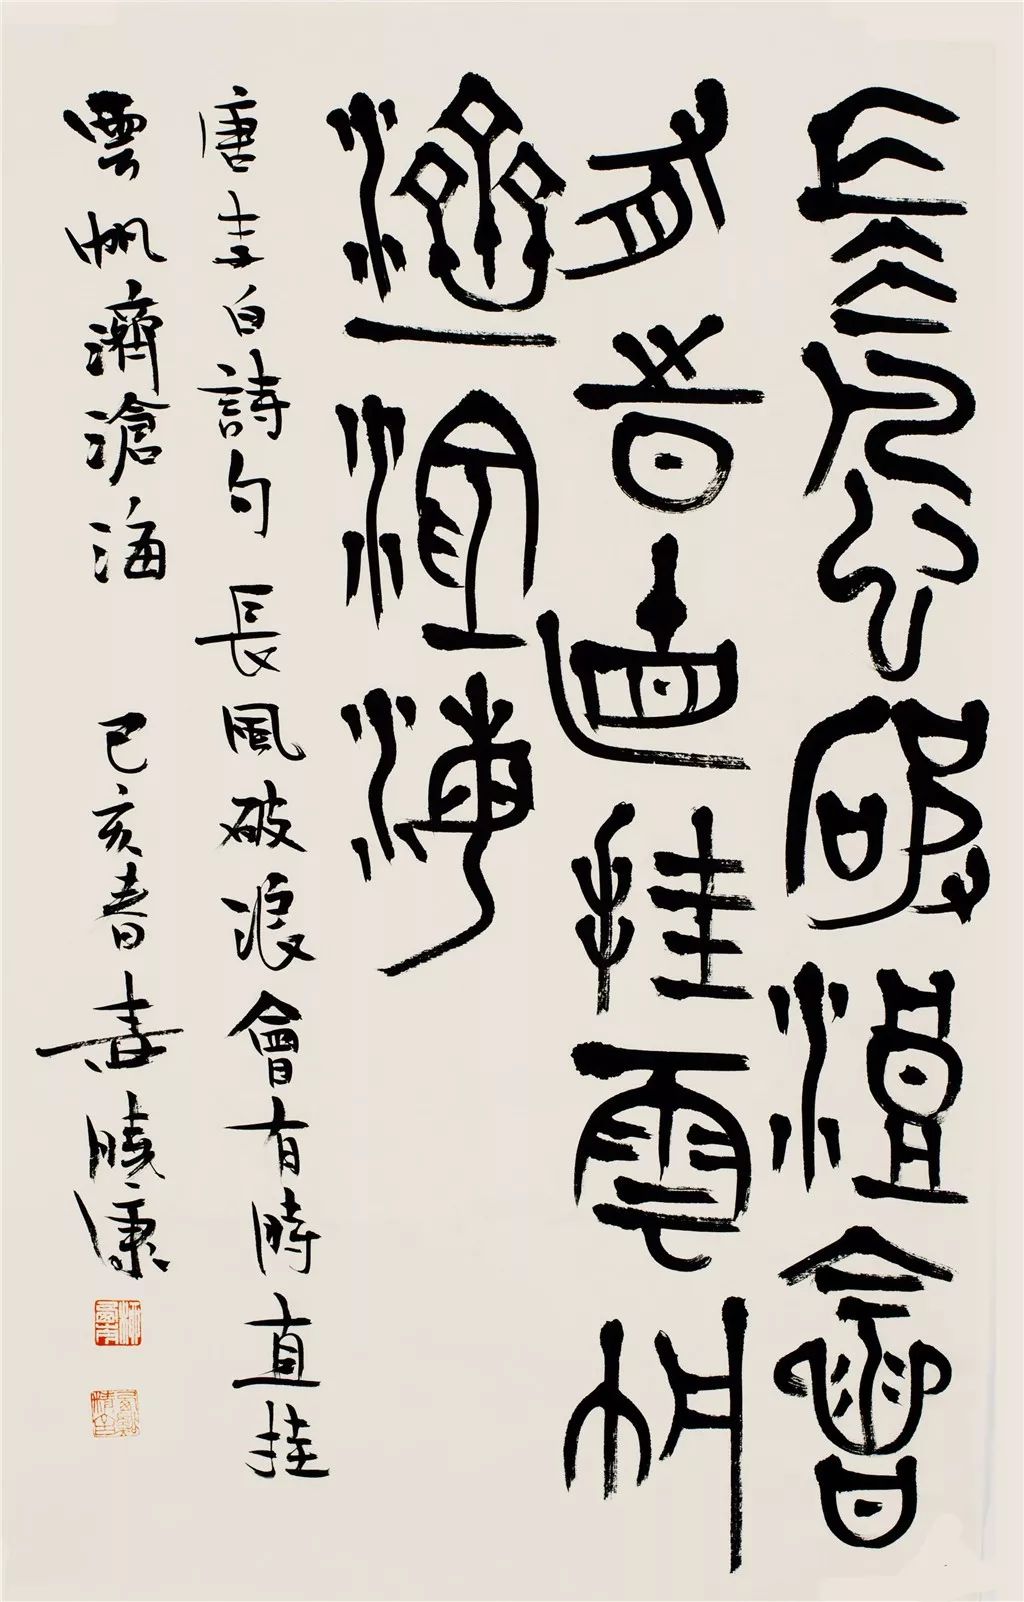 長風破浪會
有時直挂雲帆
濟滄海
唐李白詩句 長風破浪會有時直挂
雲帆濟滄海 己亥春